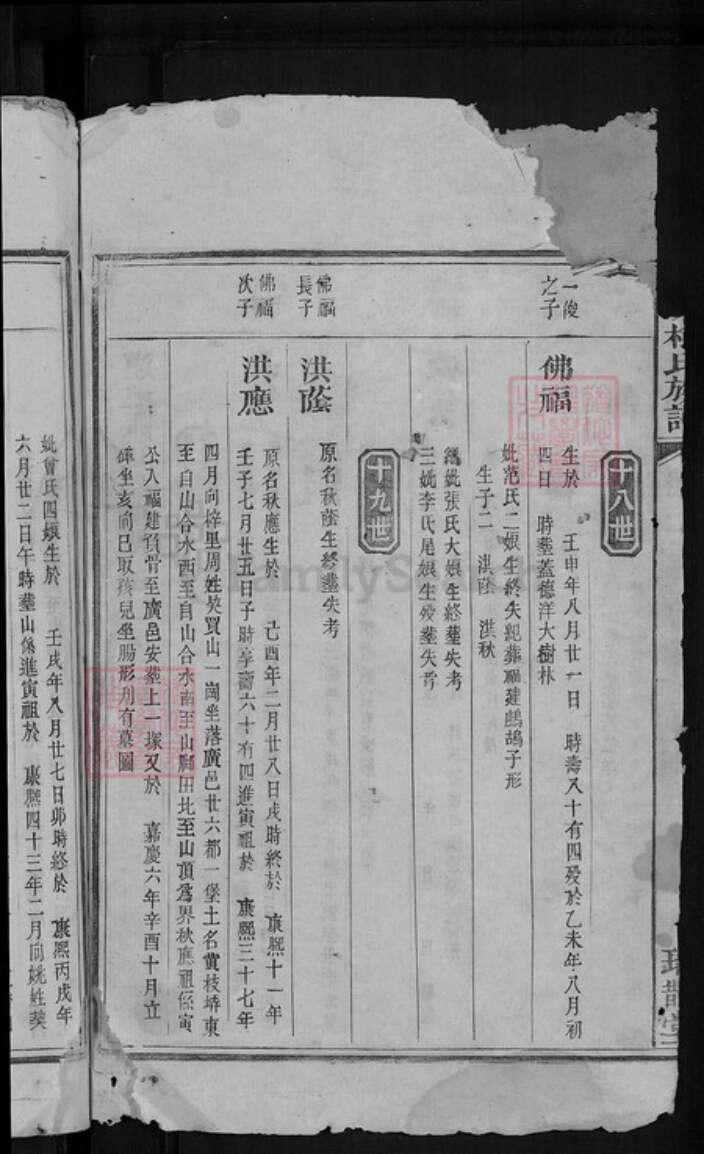 十八世
一俊之子
佛福
生於 壬申年八月廿一日 時壽八十有四歿於乙未年八月初
四日 時塟蓋德洋大樹林
妣范氏二娘生終失紀葬福建鷓鴣子形
生子二 洪蔭 洪秋
繼妣張氏大娘生終塟失考
三妣李氏尾娘生歿塟失考
十九世
佛福長子
洪蔭
原名秋蔭生終塟失考
佛福次子
洪應
原名秋應生於 己酉年二月廿八日戌時終於 康熙十一年
壬子七月廿五日子時享壽六十有四進寅祖於 康熙三十七年
四月向梓里周姓契買山一崗坐落廣邑廿六都一堡土名黃枝墇東
至自山合水西至自山合水南至山脚田北至山頂為界秋應祖係寅
公入福建負骨至廣邑安塟上一塚又於 嘉慶六年辛酉十月立
碑坐亥向巳取孩兒坐腸形另有墓圖
妣曾氏四娘生於 壬戌年八月廿七日卯時終於 康熙丙戌年
六月廿二日午時塟山係進寅祖於 康熙四十三年二月向姚姓契
氏族譜